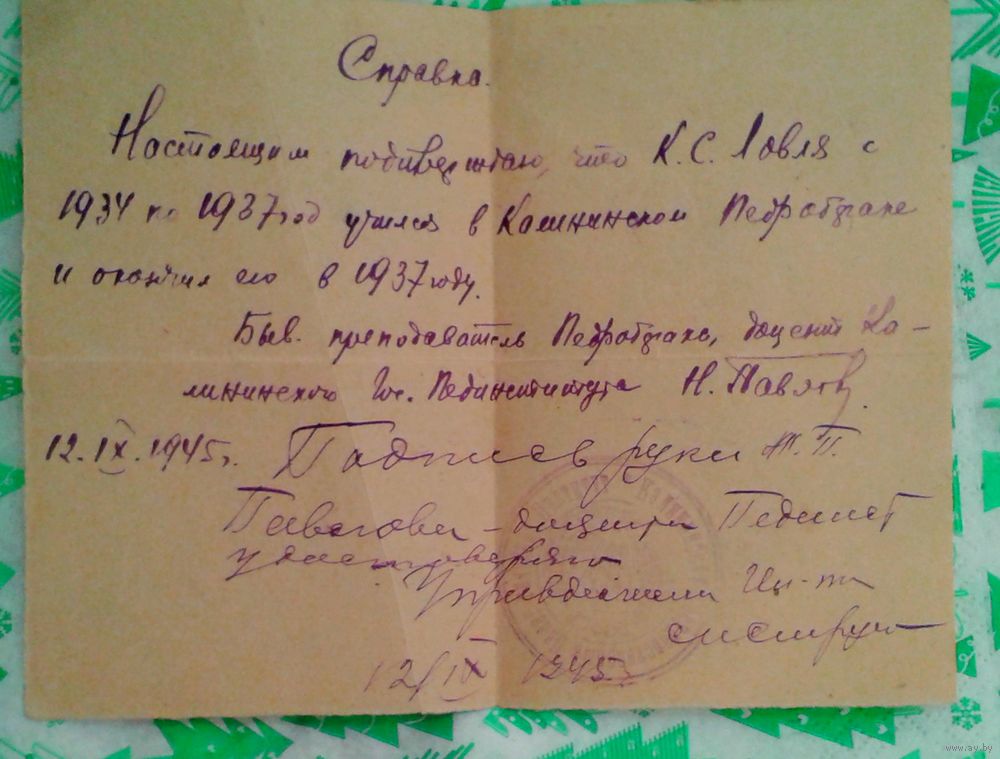 Справка.
Настоящим подтверждаю, что К.С. Ловля с
1934 по 1937 год учился в Калининском Педрабфаке
и окончил его в 1937 году.
Быв. преподаватель Педрабфака, доцент Ка-
лининского Гос. Пединститута Н. Павлов
12.IX.1945г. Подпись руки
доцента Пединст
удостоверяю
Ин-та
12/IX 1945г
www.ay.by